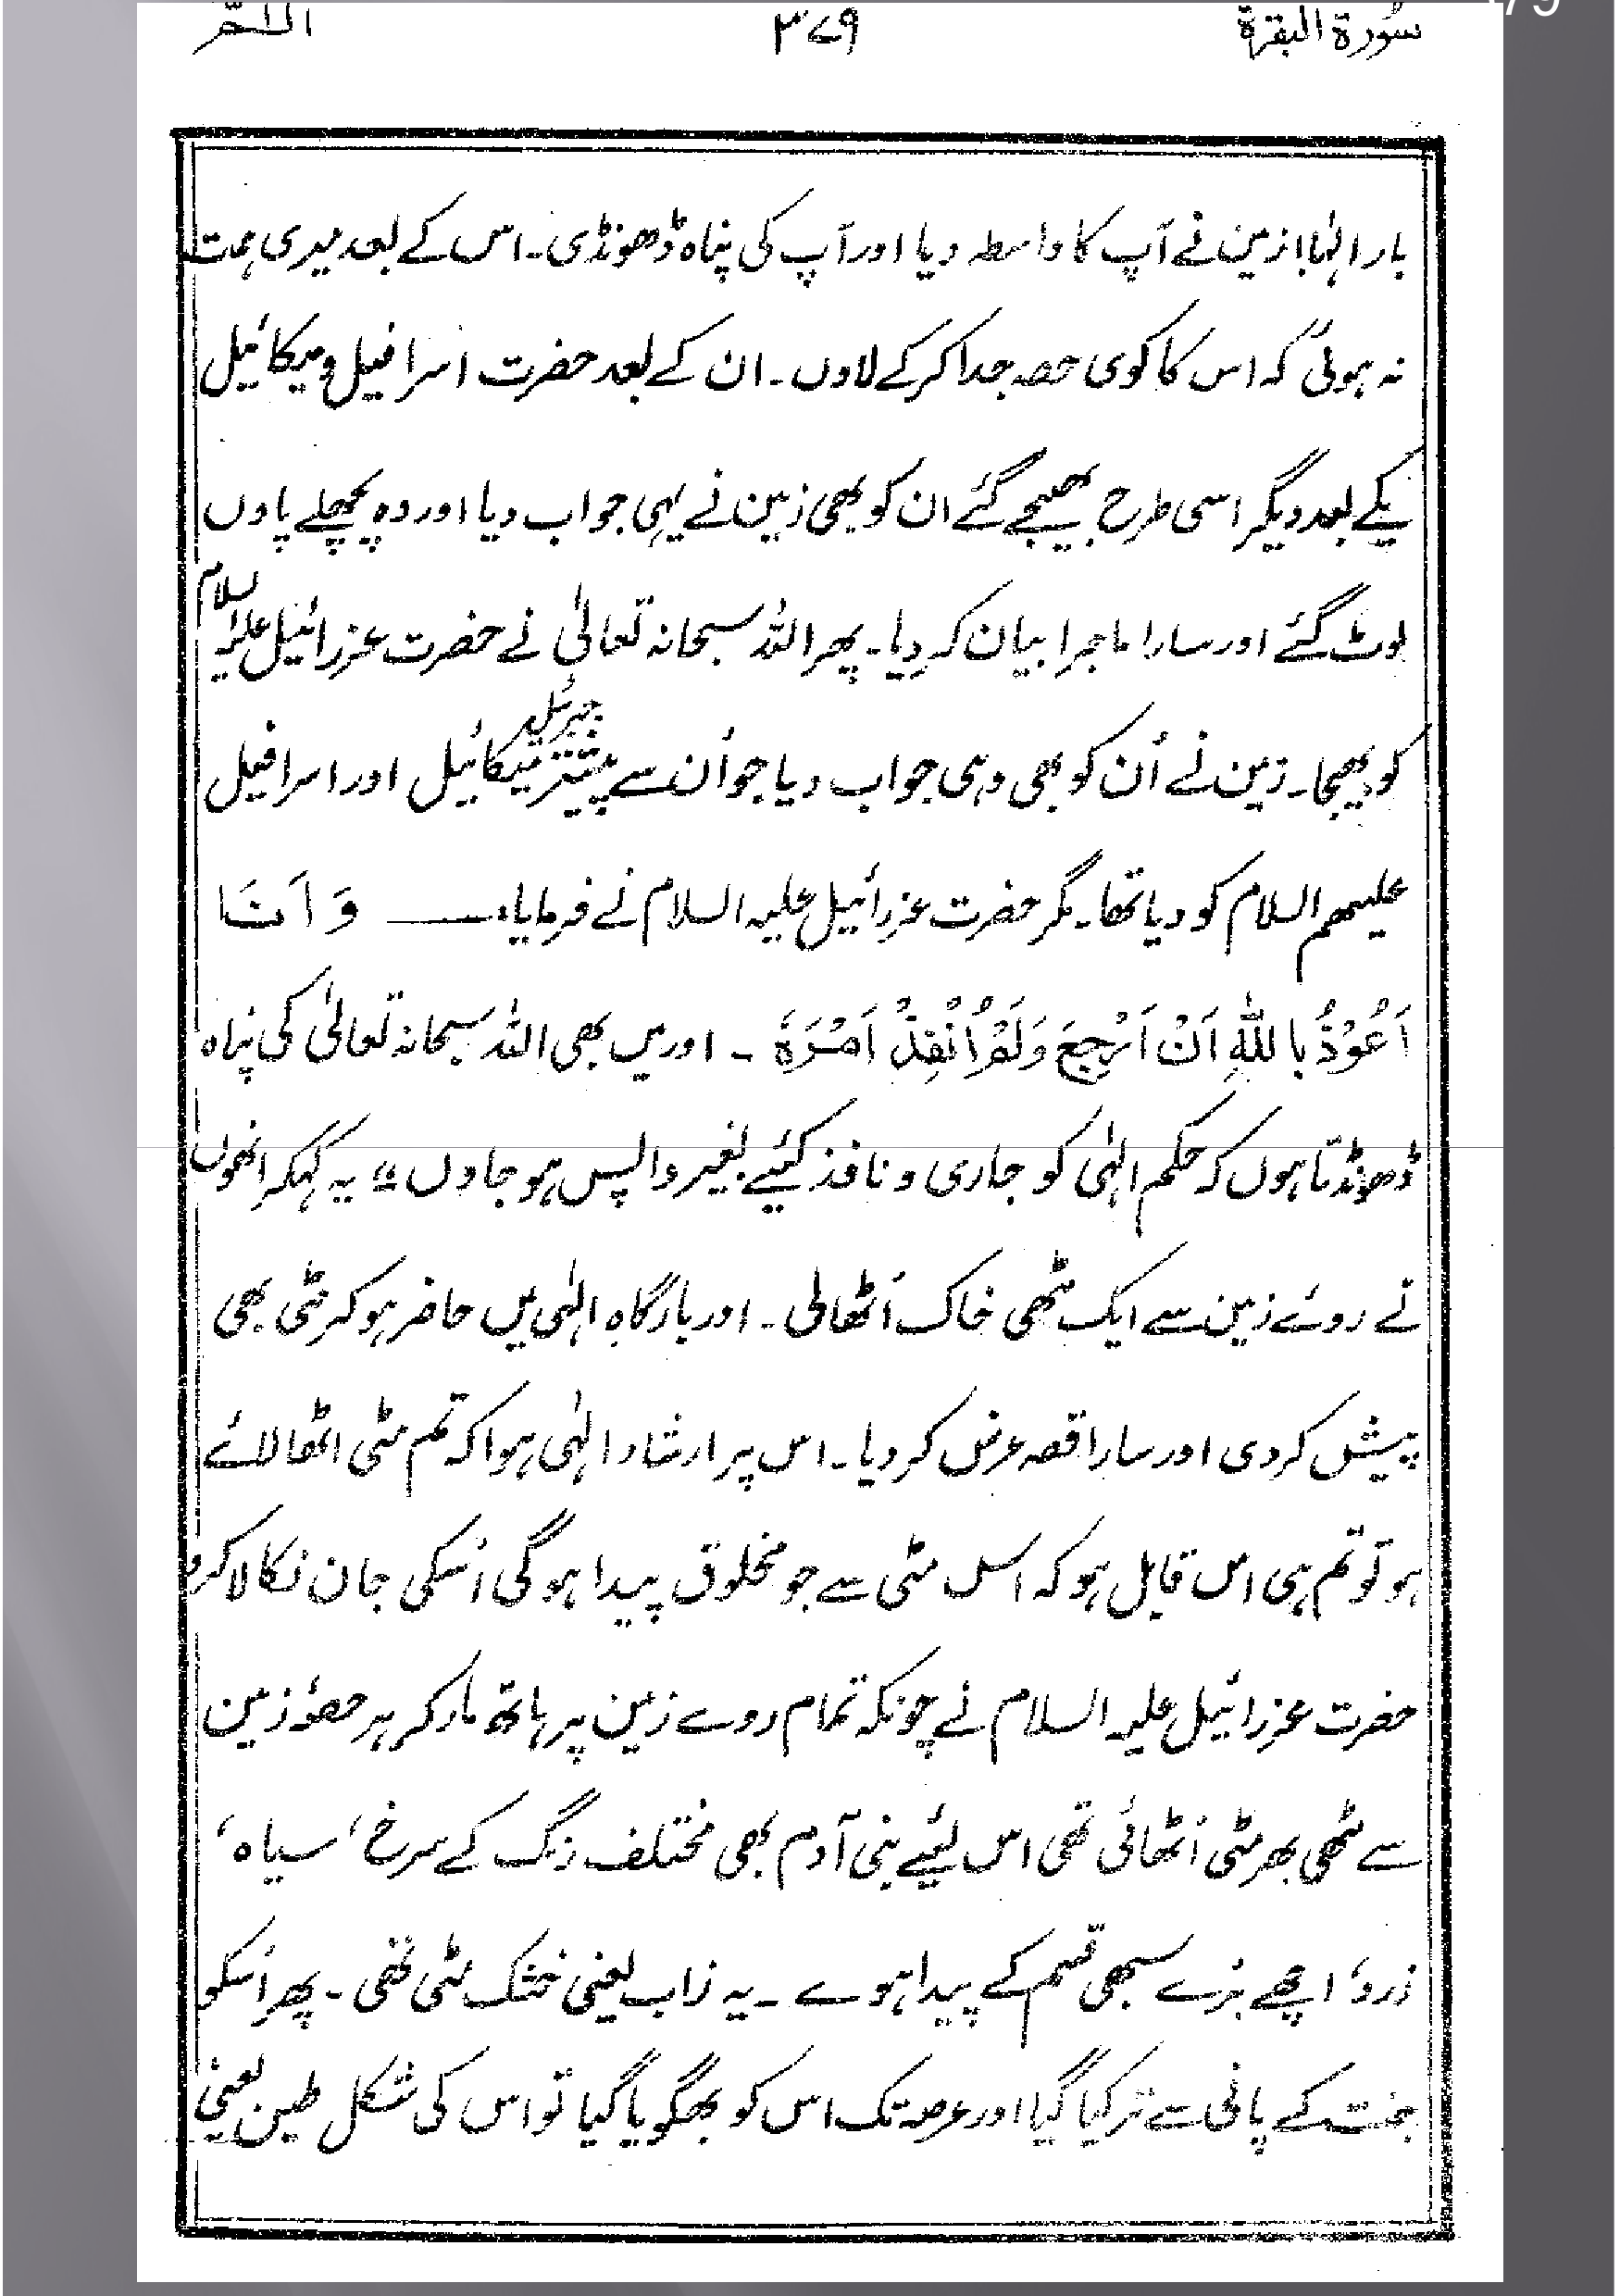 سُورۃ البقرۃ ۳۷۹ الٓـمّٓ
بار الٰہا! زمین نے آپ کا واسطہ دیا اور آپ کی پناہ ڈھونڈی۔ اس کے بعد میری ہمت
نہ ہوئی کہ اس کا کوی حصہ جدا کر کے لاوں۔ ان کے بعد حضرت اسرافیل و میکائیل
یکے بعد دیگر اسی طرح بھیجے گئے ان کو بھی زمین نے یہی جواب دیا اور وہ پچھلے پاوں
لوٹ گئے اور سارا ماجرا بیان کر دیا۔ پھر اللہ سبحانہ تعالیٰ نے حضرت عزرائیل علیہ السلام
کو بھیجا۔ زمین نے اُن کو بھی وہی جواب دیا جو اُن سے پیشتر جبرئیل میکائیل اور اسرافیل
علیہم السلام کو دیا تھا۔ مگر حضرت عزرائیل علیہ السلام نے فرمایا:ـــــ وَ اَنَا
اَعُوْذُ بِاللّٰہِ اَنْ اَرْجِعَ وَلَمْ اُنْفِذْ اَمْرَہٗ ۔ اور میں بھی اللہ سبحانہ تعالیٰ کی پناہ
ڈھونڈتا ہوں کہ حکم الٰہی کو جاری و نافذ کئیے بغیر واپس ہو جاوں" یہ کہکر انھوں
نے روئے زمین سے ایک مٹھی خاک اُٹھالی۔ اور بارگاہِ الٰہی میں حاضر ہو کر مٹی بھی
پیش کردی اور سارا قصہ عرض کر دیا۔ اس پر ارشاد الٰہی ہوا کہ تم مٹی اٹھا لائے
ہو تو تم ہی اس قابل ہو کہ اس مٹی سے جو مخلوق پیدا ہوگی اُسکی جان نکالا کرو
حضرت عزرائیل علیہ السلام نے چونکہ تمام روے زمین پر ہاتھ مار کر ہر حصۂ زمین
سے مٹھی بھر مٹی اُٹھائی تھی اس لئیے بنی آدم بھی مختلف رنگ کے سرخ، سیاہ،
زرد، اچھے بُرے سبھی قسم کے پیدا ہوے ۔ یہ تراب یعنی خشک مٹی تھی ۔ پھر اُسکو
جنت کے پانی سے تر کیا گیا اور عرصہ تک اس کو بھگویا گیا تو اس کی شکل طین یعنی